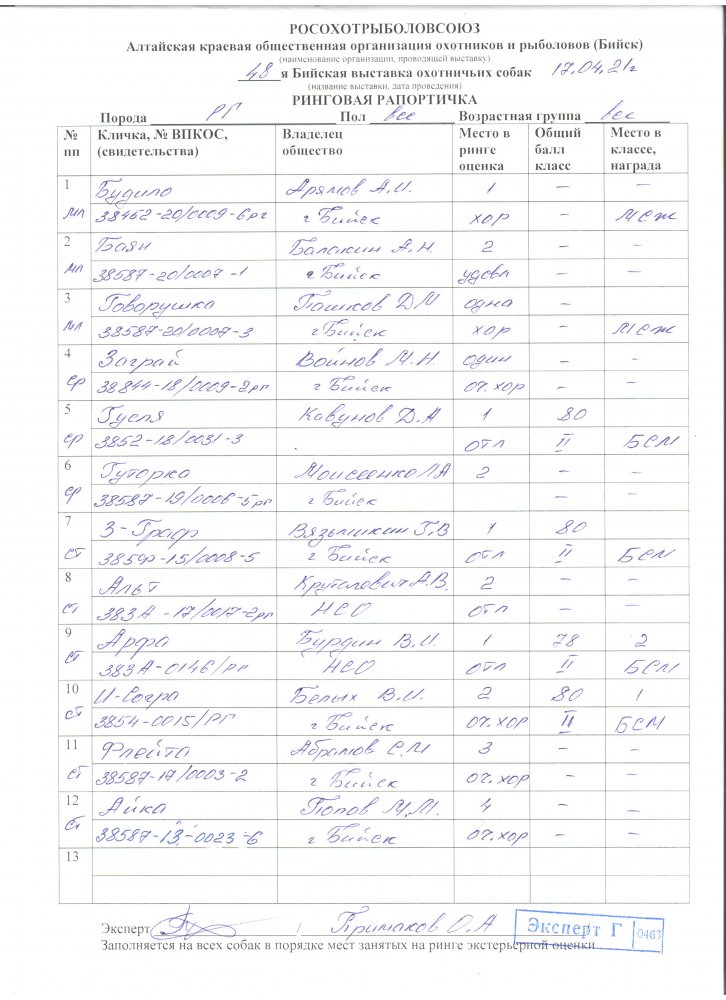 РОСОХОТРЫБОЛОВСОЮЗ
Алтайская краевая общественная организация охотников и рыболовов (Бийск)
(наименование организации, проводящей выставку)
48я Бийская выставка охотничьих собак 17.04.21г
(название выставки, дата проведения)
РИНГОВАЯ РАПОРТИЧКА
Порода РГ Пол все Возрастная группа все
№ пп Кличка, № ВПКОС, (свидетельства) Владелец общество Место в ринге оценка Общий балл класс Место в классе, награда
1 Будило Арямов А.И. 1 – –
мл 38462-20/0009-6рг г Бийск хор – МСЖ
2 Баян Балакин А.Н. 2 – –
мл 38587-20/0007-1 г Бийск удовл – –
3 Говорушка Пашков ДМ одна –
мл 38587-20/0007-3 г Бийск хор – МСЖ
4 Заграй Войнов М.Н. один –
ср 38844-18/0009-2рг г Бийск оч.хор – –
5 Гусля Кавунов Д.А 1 80
ср 3852-18/0031-3 отл II БСМ
6 Гуторка Моисеенко ЛА 2 – –
ср 38587-19/0006-5рг г Бийск – –
7 З-Граф Вязьмикин Г.В 1 80
ст 3859ф-15/0008-5 г Бийск отл II БСМ
8 Альт Круталевич А.В. 2 – –
ст 383А-17/0017-2рг НСО отл – –
9 Арфа Бурдин В.И. 1 78 2
ст 383А-0146/рг НСО отл II БСМ
10 И-Согра Белых В.И. 2 80 1
ст 3854-0015/РГ г Бийск оч.хор II БСМ
11 Флейта Абрамов С.И 3 – –
ст 38587-17/0003-2 г Бийск оч.хор – –
12 Айка Попов М.М. 4 – –
ст 38587-13-0023-6 г Бийск оч.хор – –
13
Эксперт / Примаков О.А
Эксперт Г 0463
Заполняется на всех собак в порядке мест занятых на ринге экстерьерной оценки